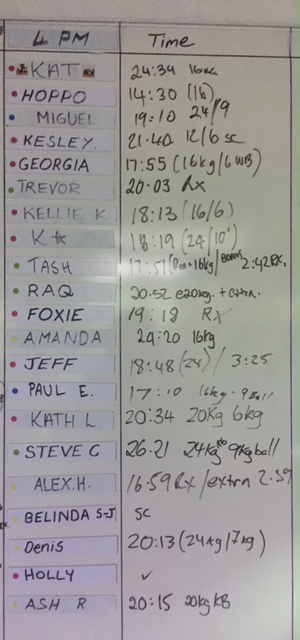 4 PM Time
KAT 24:34 16kg
HOPPO 14:30 (16)
MIGUEL 19:10 24/9
KESLEY. 21.40 12/6 sc
GEORGIA 17:55 (16kg/6WB)
TREVOR 20.03 Rx
KELLIE K 18:13 (16/6)
K☆ 18:19 (24/10')
TASH 17:51 16kg/BONUS 2:42RX.
RAQ 20.52 +extra.
FOXIE 19:18 RX
AMANDA 24:20 16kg
JEFF 18:48 (24) / 3:25
PAUL E. 17:10 16kg - 9Ball
KATH L 20:34 20kg 6kg
STEVE C 26.21 24kg 9kg ball
ALEX.H. 16:59 Rx/extra 2.59
BELINDA S-J SC
Denis 20:13 (24kg/7kg)
HOLLY ✓
ASH R 20:15 20kg KB